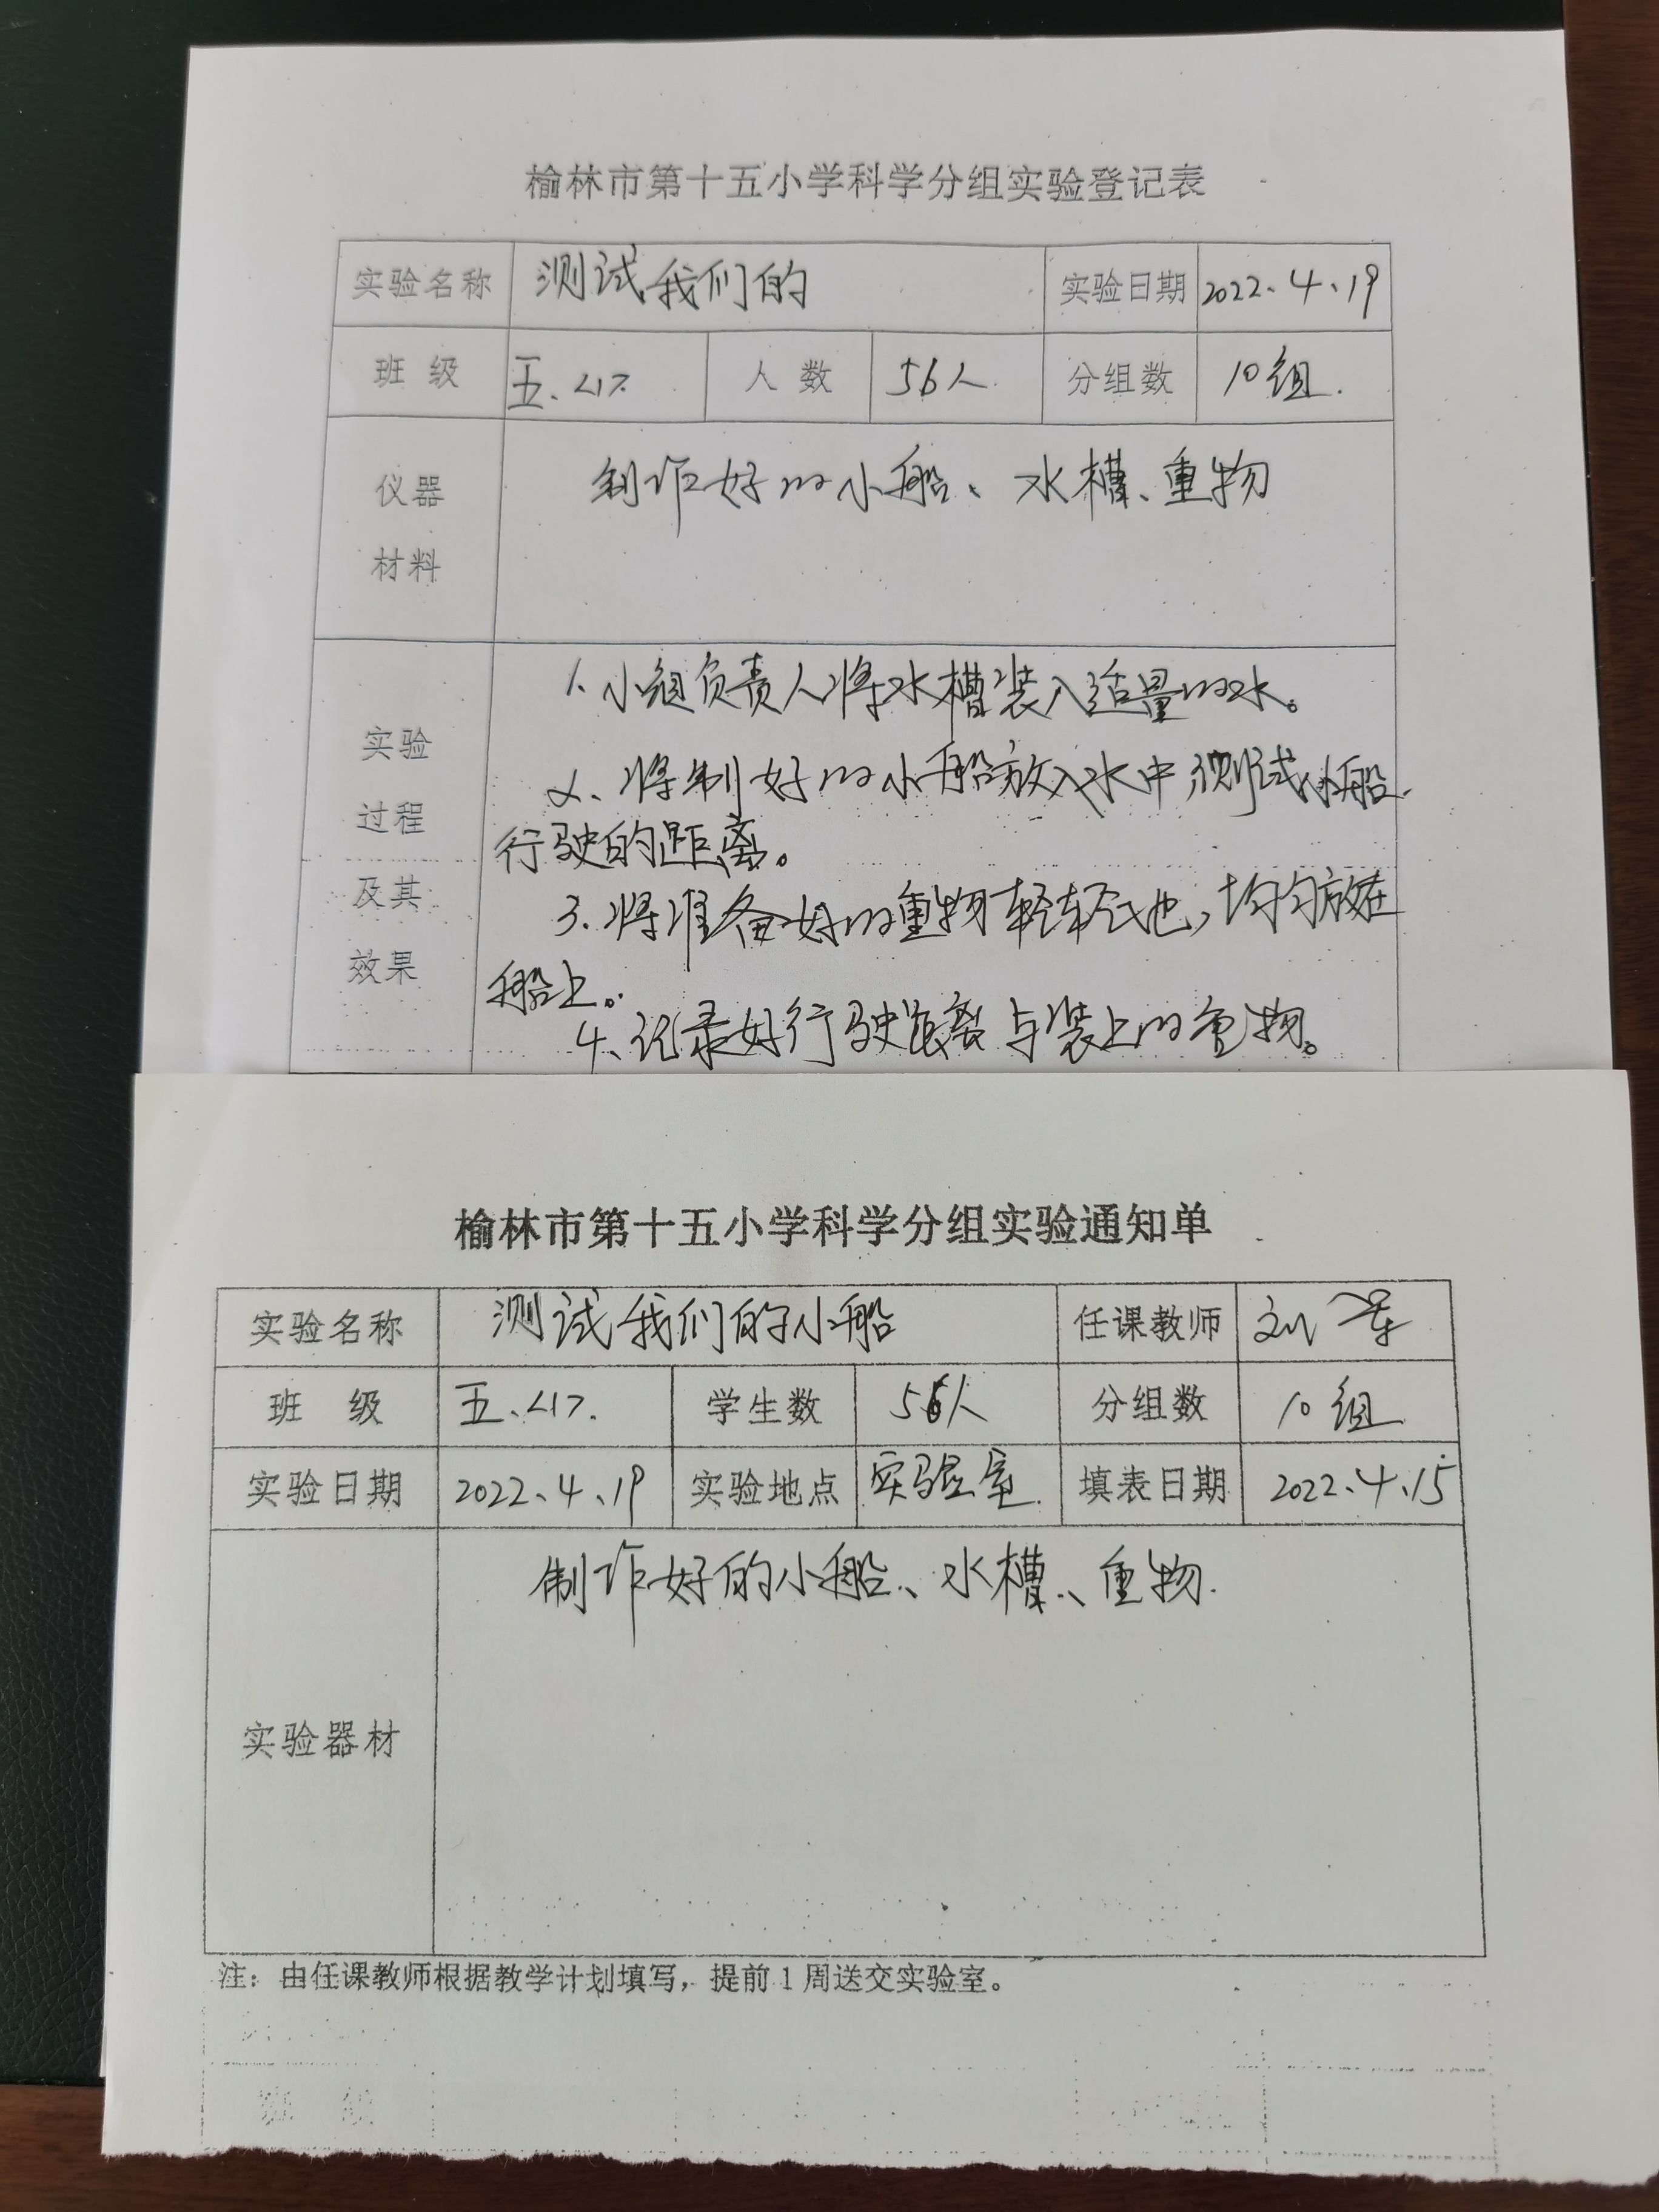 榆林市第十五小学科学分组实验登记表
实验名称 测试我们的 实验日期 2022、4、19
班 级 五、<1> 人 数 56人 分组数 10组.
仪器 制作好的小船、水槽、重物
材料
实验 1. 小组负责人将水槽装入适量的水。
过程 2、将制好的小船放入水中,测试小船
及其 行驶的距离。
效果 3. 将准备好的重物轻轻地,均匀放在
船上。
4、记录好行驶距离与装上的重物。
榆林市第十五小学科学分组实验通知单
实验名称 测试我们的小船 任课教师 刘
班 级 五、<1>. 学生数 56人 分组数 10组
实验日期 2022、4、19 实验地点 实验室. 填表日期 2022、4、15
实验器材 制作好的小船、水槽、重物.
注：由任课教师根据教学计划填写，提前1周送交实验室。
班 级